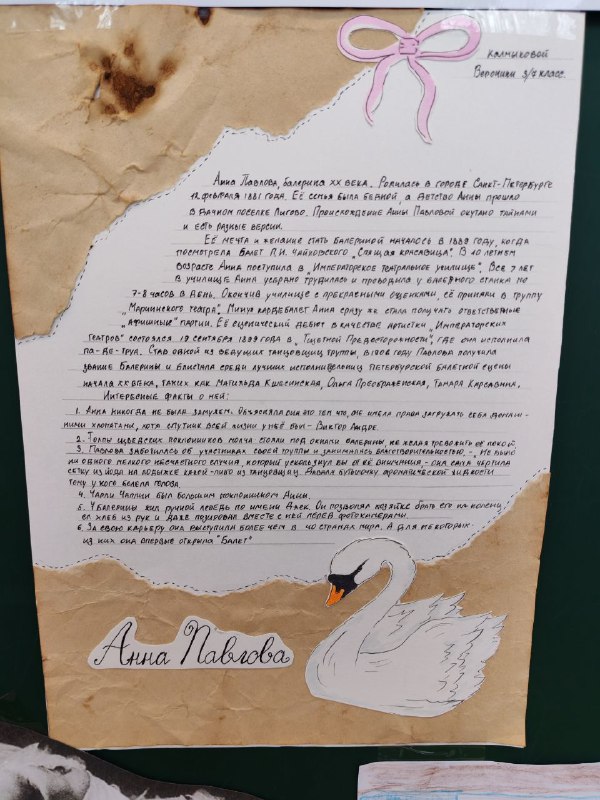 Калмыковой
Вероники 3/7 класс.
Анна Павлова, балерина XX века. Родилась в городе Санкт-Петербурге
12 февраля 1881 года. Её семья была бедной, а детство Анны прошло
в дачном поселке Лигово. Происхождение Анны Павловой окутано тайнами
и есть разные версии.
Её мечта и желание стать балериной началось в 1889 году, когда
посмотрела балет П.И. Чайковского "Спящая красавица". В 10 летнем
возрасте Анна поступила в "Императорское театральное училище". Все 7 лет
в училище Анна усердно трудилась и проводила у балетного станка по
7-8 часов в день. Окончив училище с прекрасными оценками, её приняли в труппу
"Мариинского театра". Минуя кордебалет Анна сразу же стала получать ответственные
"афишные" партии. Её сценический дебют в качестве артистки "Императорских
театров" состоялся 19 сентября 1899 года в "Тщетной Предосторожности", где она исполнила
па-де-труа. Став одной из ведущих танцовщиц труппы, в 1906 году Павлова получила
звание Балерины и блистала среди лучших исполнительниц Петербурской балетной сцены
начала XX века, таких как Матильда Кшесинская, Ольга Преображенская, Тамара Карсавина.
Интересные факты о ней:
1. Анна никогда не была замужем. Объясняла она это тем что, не имела права загружать себя домаш-
ними хлопотами, хотя спутник всей жизни у неё был - Виктор Дандре.
2. Толпы шведских поклонников молча стояли под окнами балерины, не желая тревожить её покой.
3. Павлова заботилась об участниках своей труппы и занималась благотворительностью. -, Не было
ни одного мелкого несчастного случая, который ускользнул бы от её внимания, - она сама чертила
сетку из йода на лодыжке какой-либо из танцовщиц. Давала бутылочку ароматической жидкости
тому у кого болела голова.
4. Чарли Чаплин был большим поклонником Анны.
5. У балерины жил ручной лебедь по имени Джек. Он позволял хозяйке брать его на колени,
ел хлеб из рук и даже позировал вместе с ней перед фотокамерами.
6. За свою карьеру она выступила более чем в 40 странах мира. А для некоторых
из них она впервые открыла "Балет"
Анна Павлова